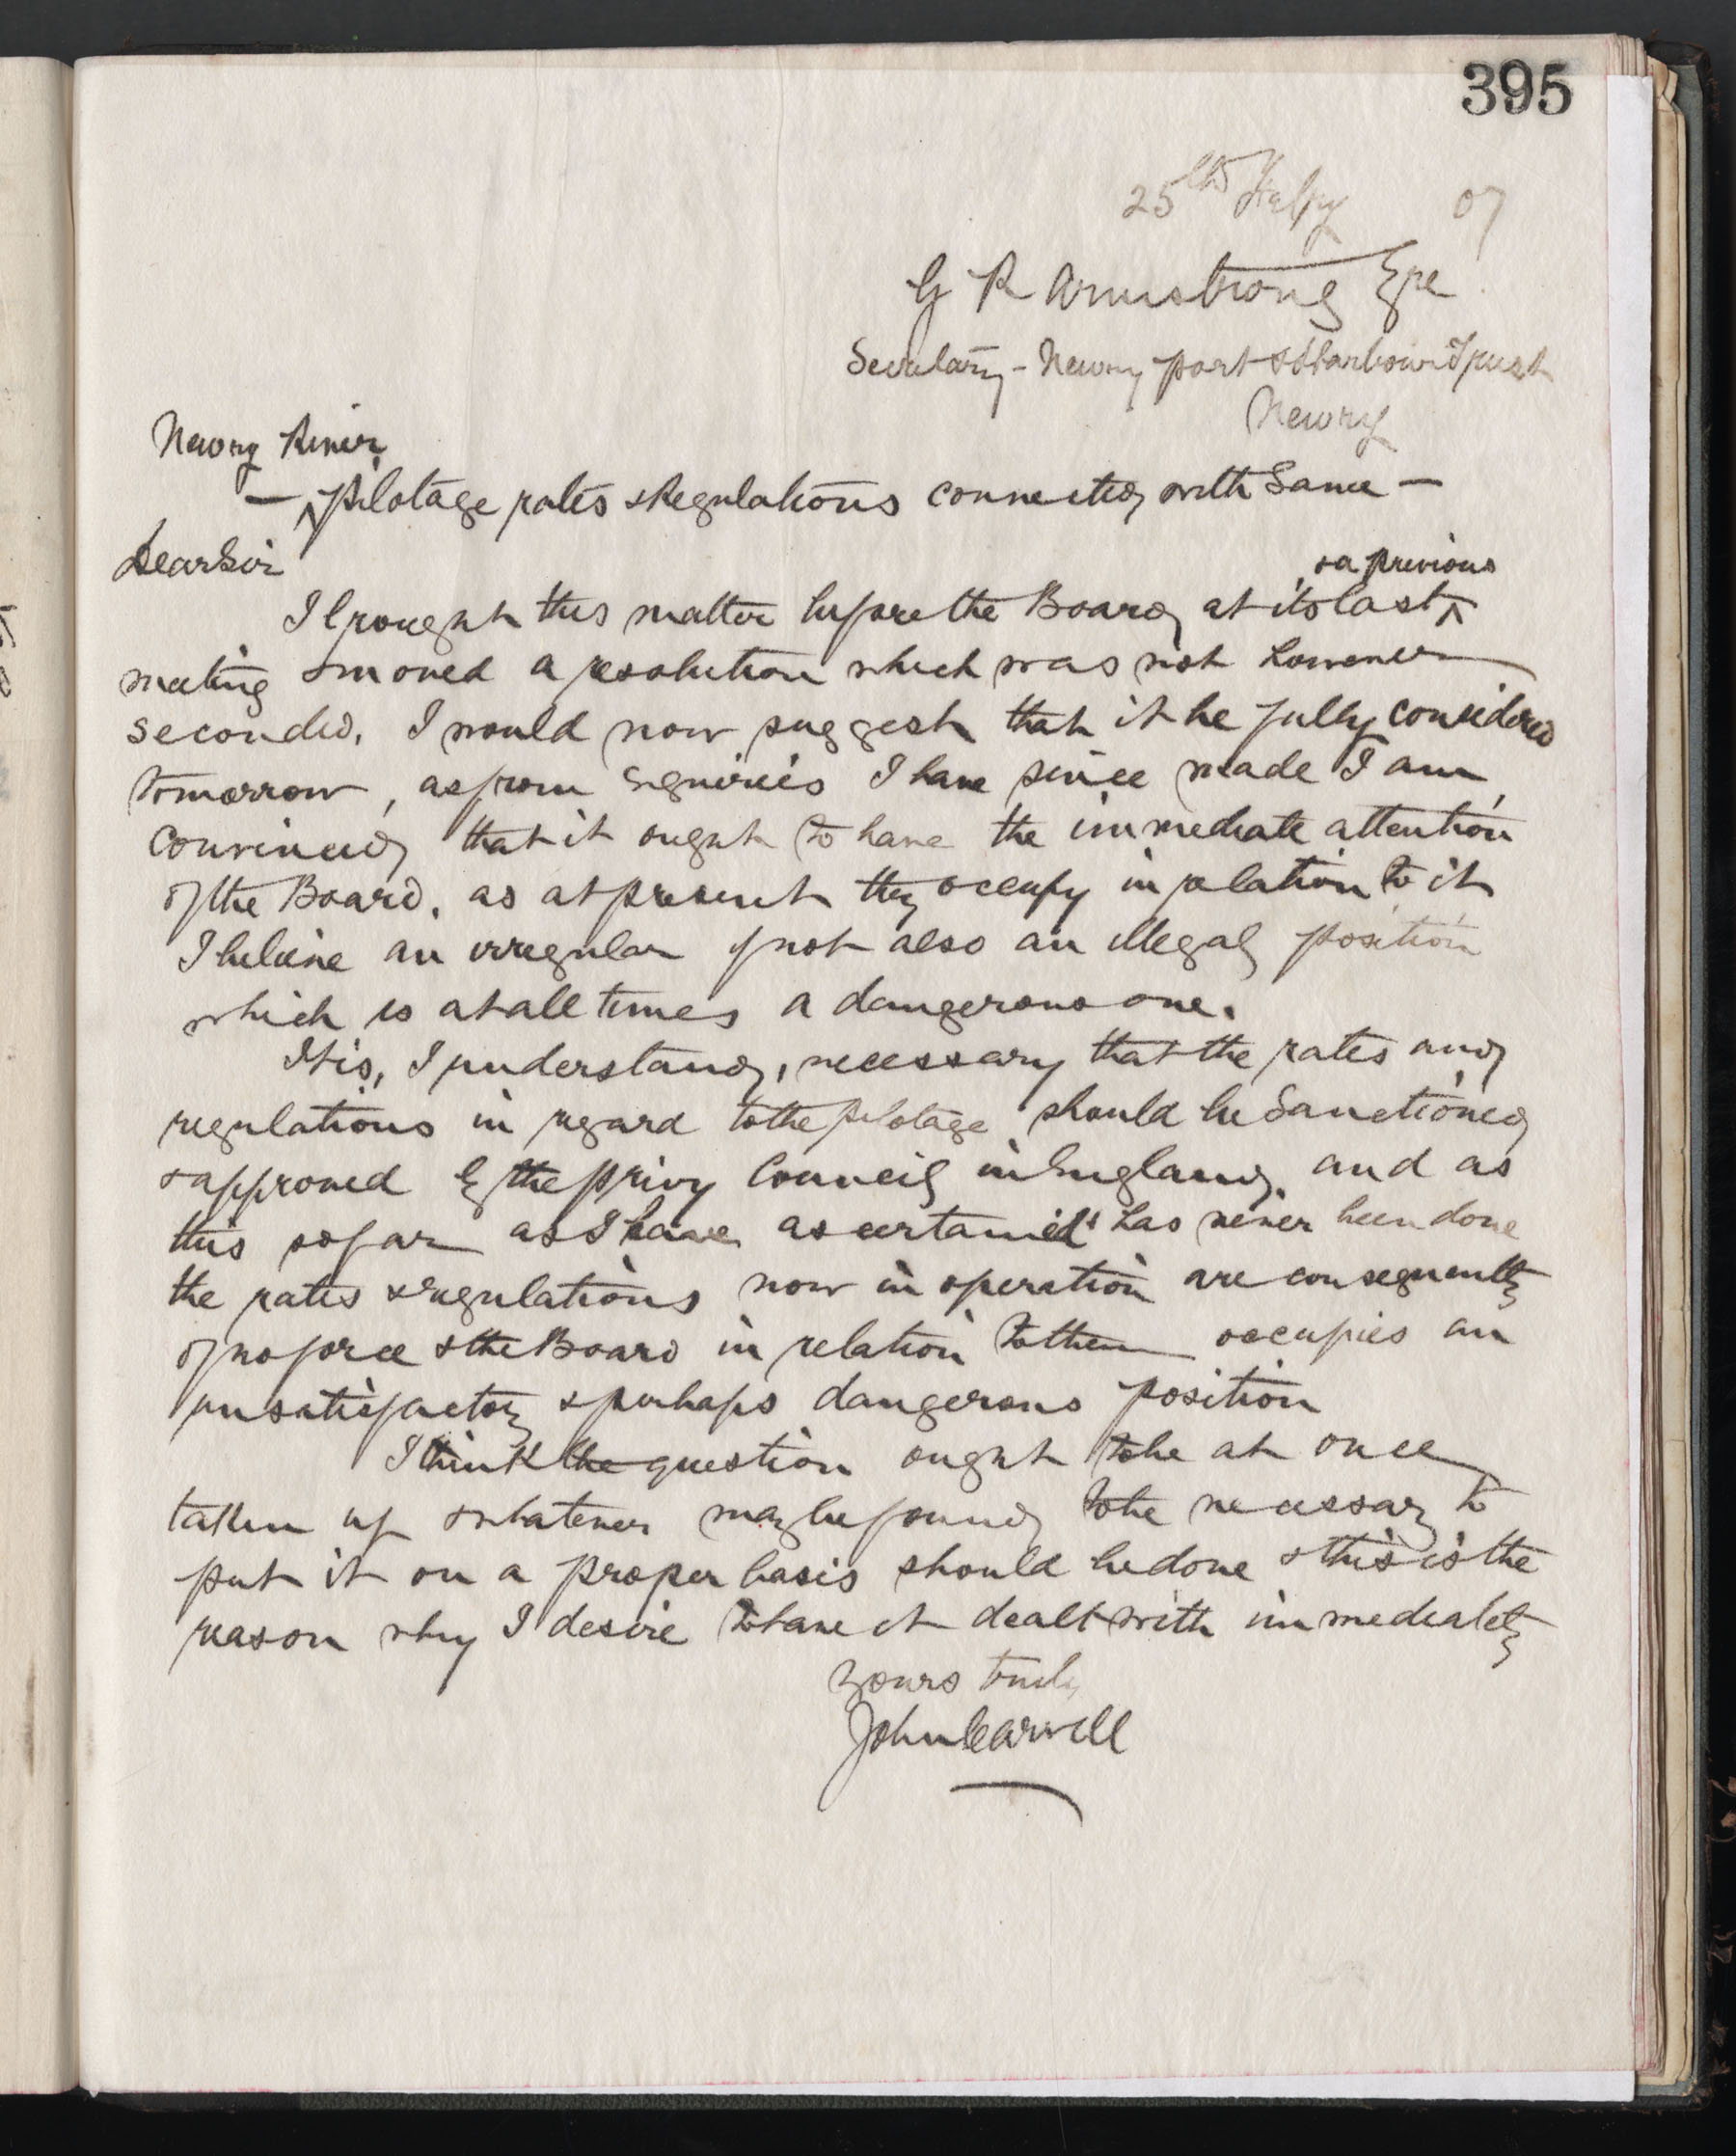 395
25th Feby 07
G R Armstrong Esqre
Secretary - Newry port & Harbour Trust
Newry
Newry River
— Pilotage rates & Regulations connected with Same —
Dear Sir
& a previous
I brought this matter before the Board at its last
meeting & moved a resolution which was not however
seconded. I would now suggest that it be fully considered
tomorrow, as from enquiries I have since made I am
convinced that it ought to have the immediate attention
of the Board, as at present they occupy in relation to it
I believe an irregular if not also an illegal position
which is at all times a dangerous one.
It is, I understand, necessary that the rates and
regulations in regard to the pilotage should be Sanctioned
& approved by the privy Council in England, and as
this so far as I have ascertained has never been done
the rates & regulations now in operation are consequently
of no force & the Board in relation to them occupies an
unsatisfactory & perhaps dangerous position
I think the question ought to be at once
taken up & whatever may be found to be necessary to
put it on a proper basis should be done & this is the
reason why I desire to have it dealt with immediately
Yours truly
John Carvill